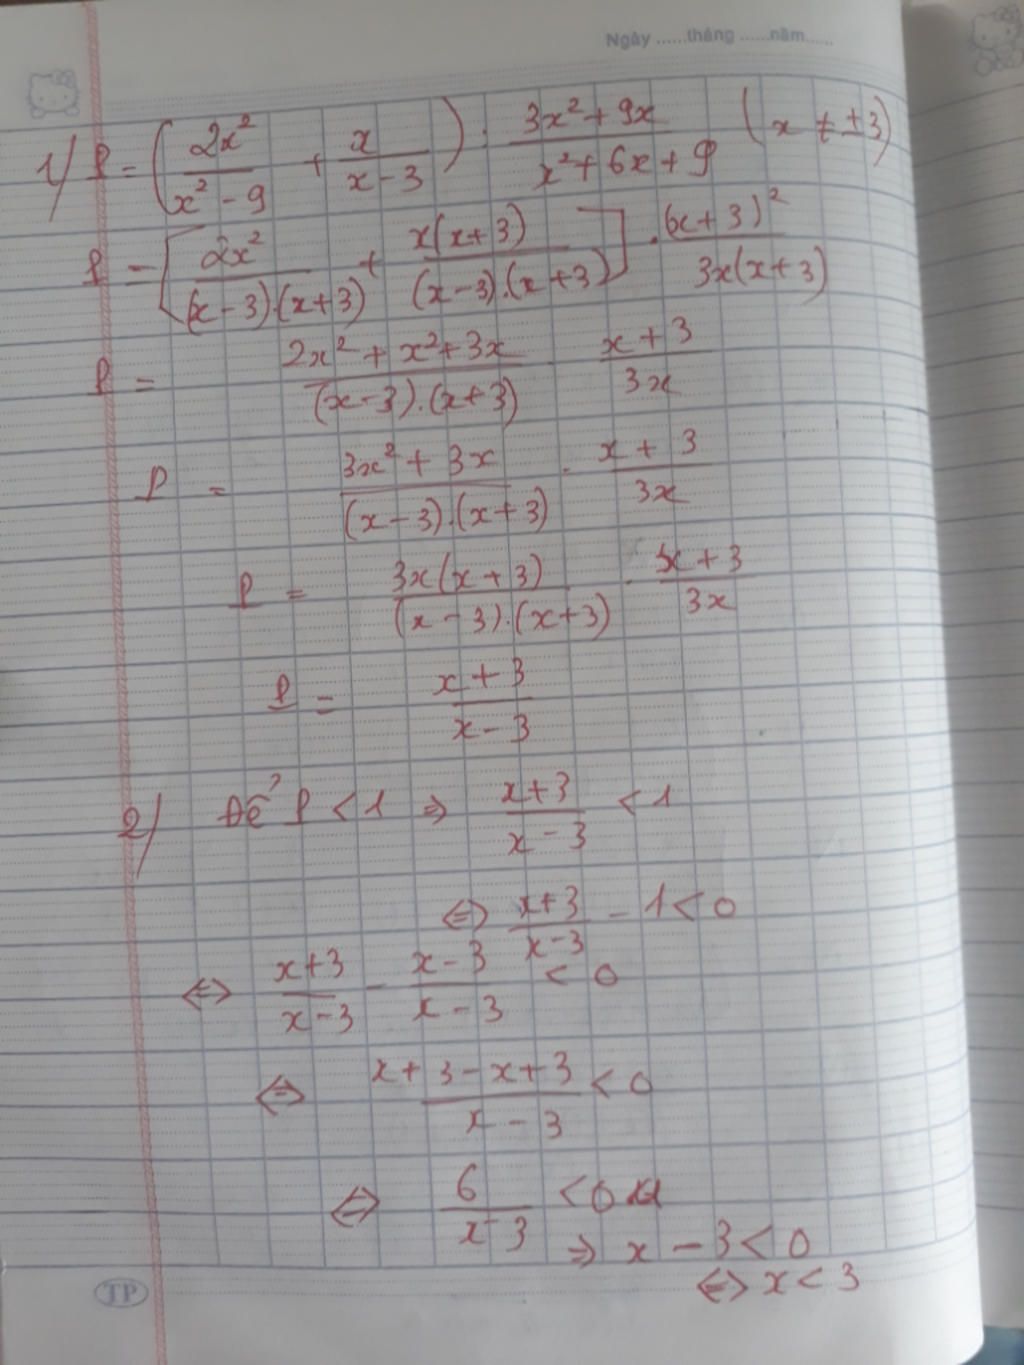 Ngày ......tháng ......năm......
1/ P = (2x²/(x² - 9) + x/(x - 3)) . (3x² + 9x)/(x² + 6x + 9) (x ≠ ±3)
P = [2x²/((x - 3).(x + 3)) + x(x + 3)/((x - 3).(x + 3))] . (x + 3)²/(3x(x + 3))
P = (2x² + x² + 3x)/((x - 3).(x + 3)) . (x + 3)/(3x)
P = (3x² + 3x)/((x - 3).(x + 3)) . (x + 3)/(3x)
P = 3x(x + 3)/((x - 3).(x + 3)) . (x + 3)/(3x)
P = (x + 3)/(x - 3)
2/ Để P < 1 => (x + 3)/(x - 3) < 1
<=> (x + 3)/(x - 3) - 1 < 0
<=> (x + 3)/(x - 3) - (x - 3)/(x - 3) < 0
<=> (x + 3 - x + 3)/(x - 3) < 0
<=> 6/(x - 3) < 0
=> x - 3 < 0
<=> x < 3
TP